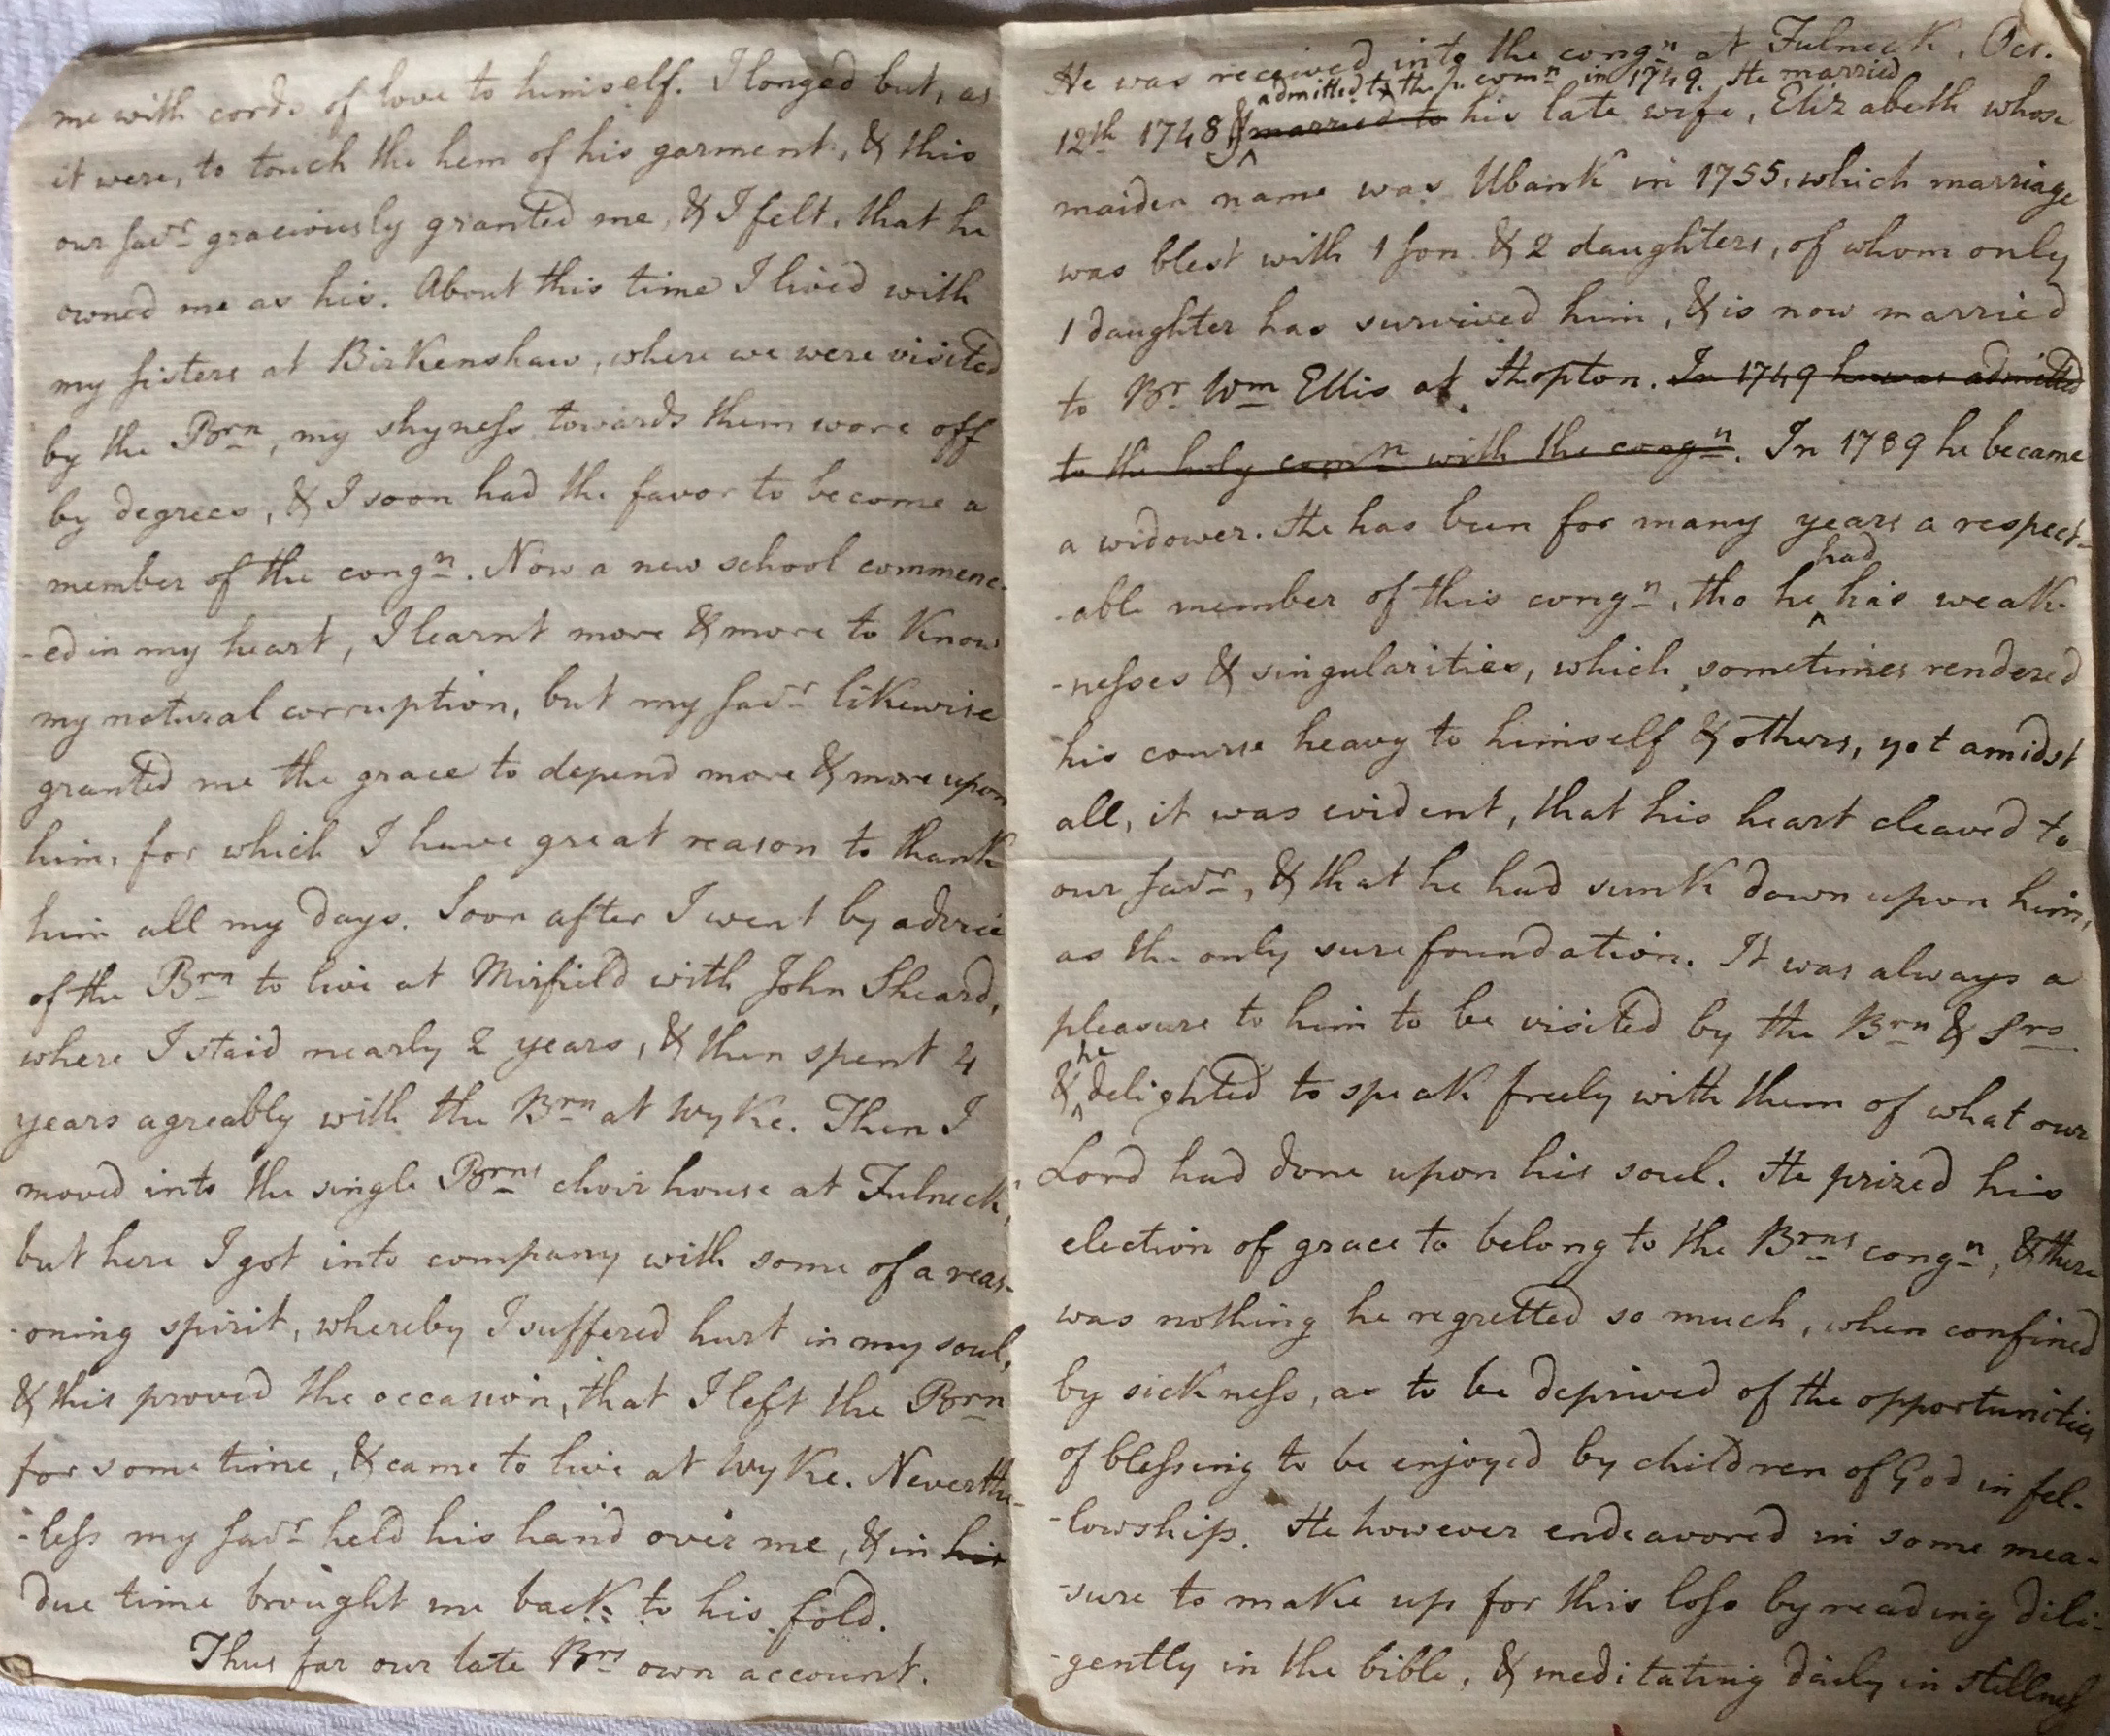 me with cords of love to himself. I longed but, as
it were, to touch the hem of his garment, & this
our Savr graciously granted me, & I felt, that he
owned me as his. About this time I lived with
my sisters at Birkenshaw, where we were visited
by the Brn, my shyness towards them wore off
by degrees, & I soon had the favor to become a
member of the congn. Now a new school commenc-
-ed in my heart, I learnt more & more to know
my natural corruption, but my Savr likewise
granted me the grace to depend more & more upon
him, for which I have great reason to thank
him all my days. Soon after I went by advice
of the Brn to live at Mirfield with John Sheard,
where I staid nearly 2 years, & then spent 4
years agreably with the Brn at Wyke. Then I
moved into the single Brns choir house at Fulneck,
but here I got into company with some of a reas-
-oning spirit, whereby I suffered hurt in my soul,
& this proved the occasion, that I left the Brn
for some time, & came to live at Wyke. Neverthe-
-less my Savr held his hand over me, & in his
due time brought me back to his fold.
Thus far our late Brs own account.
He was received into the congn at Fulneck, Oct.
admitted to the h. comn in 1749. He married
12th 1748, & married to his late wife, Elizabeth whose
maiden name was Ubank in 1755, which marriage
was blest with 1 son & 2 daughters, of whom only
1 daughter has survived him, & is now married
to Br Wm Ellis at Hopton. In 1749 he was admitted
to the holy comn with the congn. In 1789 he became
a widower. He has been for many years a respect-
had
-able member of this congn, tho he his weak-
-nesses & singularities, which sometimes rendered
his course heavy to himself & others, yet amidst
all, it was evident, that his heart cleaved to
our Savr, & that he had sunk down upon him,
as the only sure foundation. It was always a
pleasure to him to be visited by the Brn & Srs
he
& delighted to speak freely with them of what our
Lord had done upon his soul. He prized his
election of grace to belong to the Brns congn, & there
was nothing he regretted so much, when confined
by sickness, as to be deprived of the opportunities
of blessing to be enjoyed by children of God in fel-
-lowship. He however endeavored in some mea-
-sure to make up for this loss by reading dili-
-gently in the bible, & meditating daily in stillness